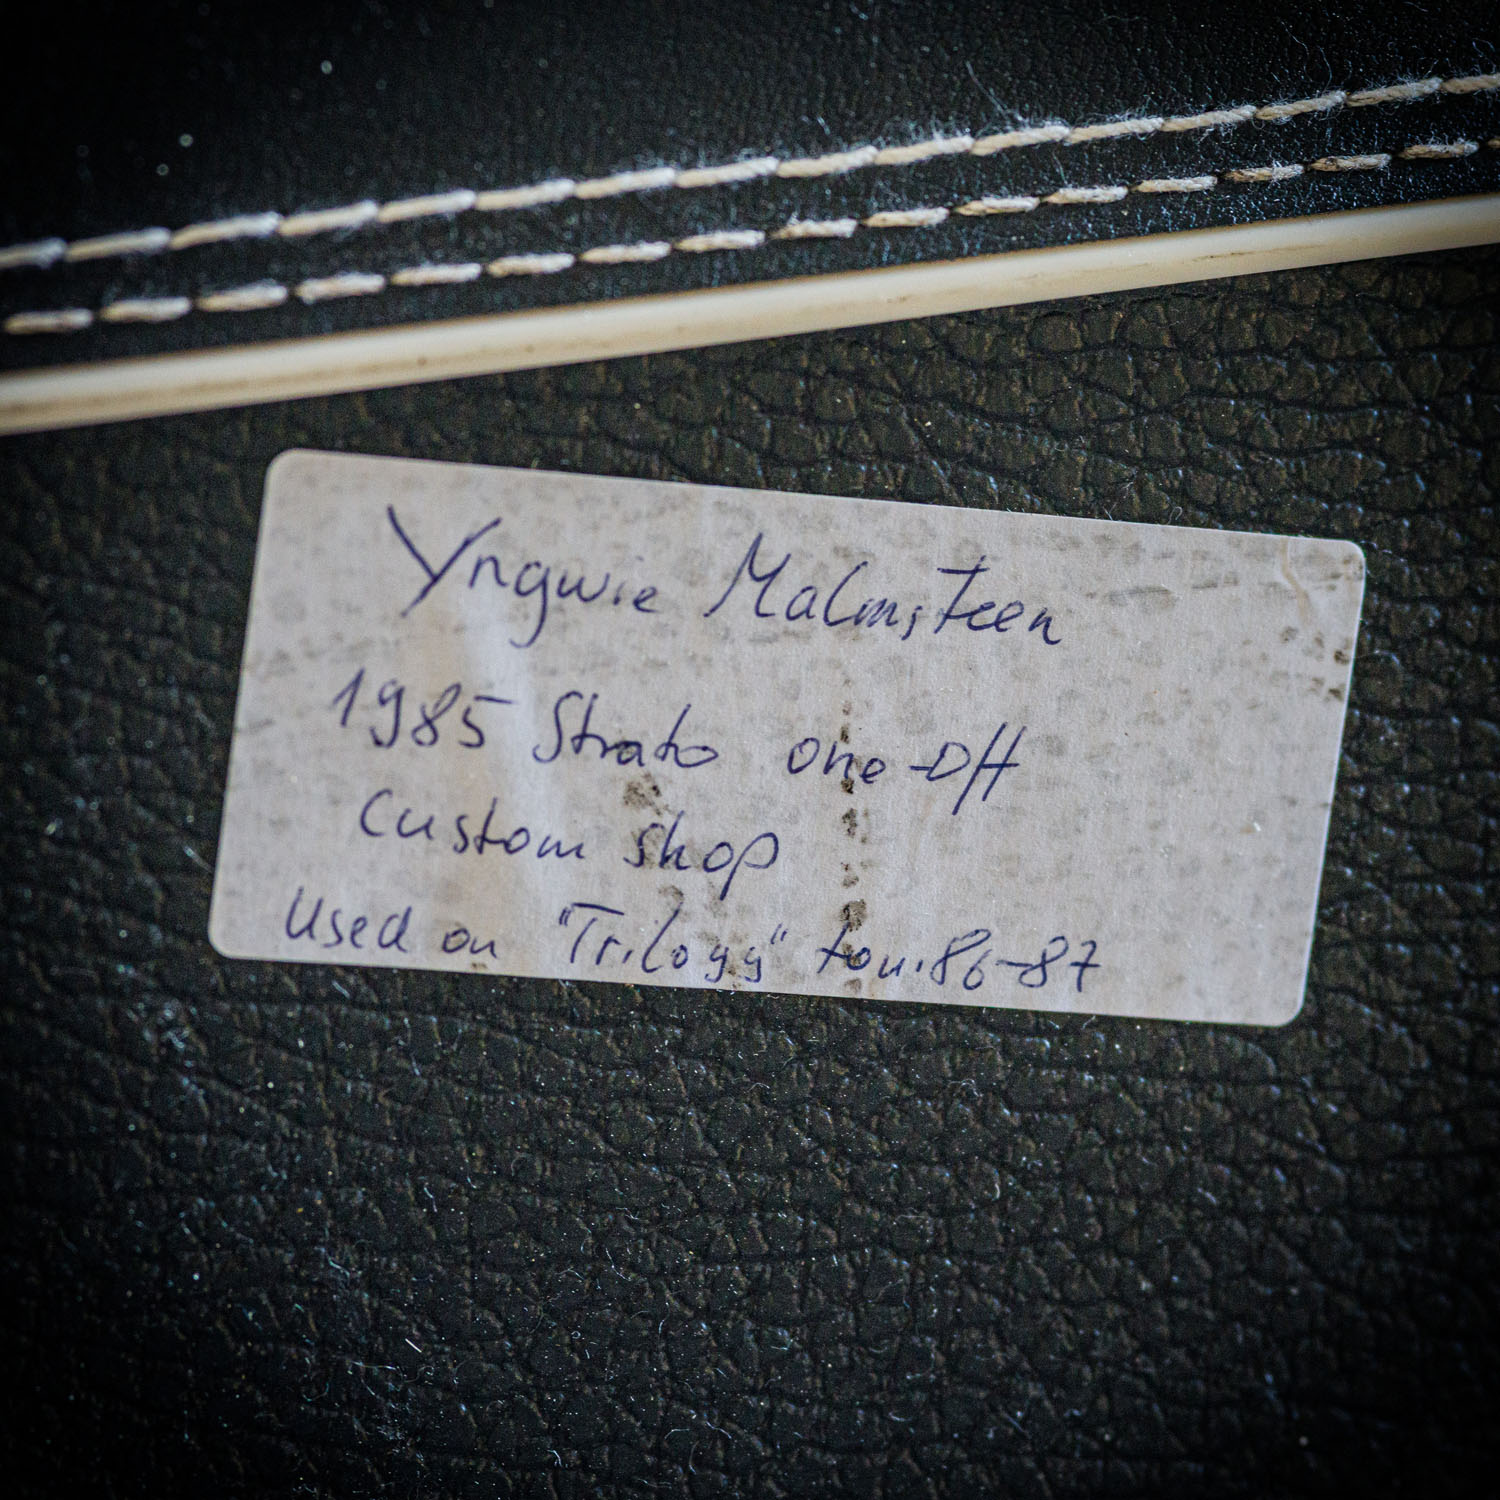 Yngwie Malmsteen
1985 Strato one-off
Custom shop
Used on "Trilogy" tour 86-87